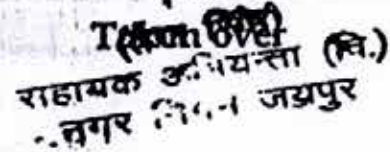 राहायक अभियन्ता (वि.)
नगर निगम जयपुर